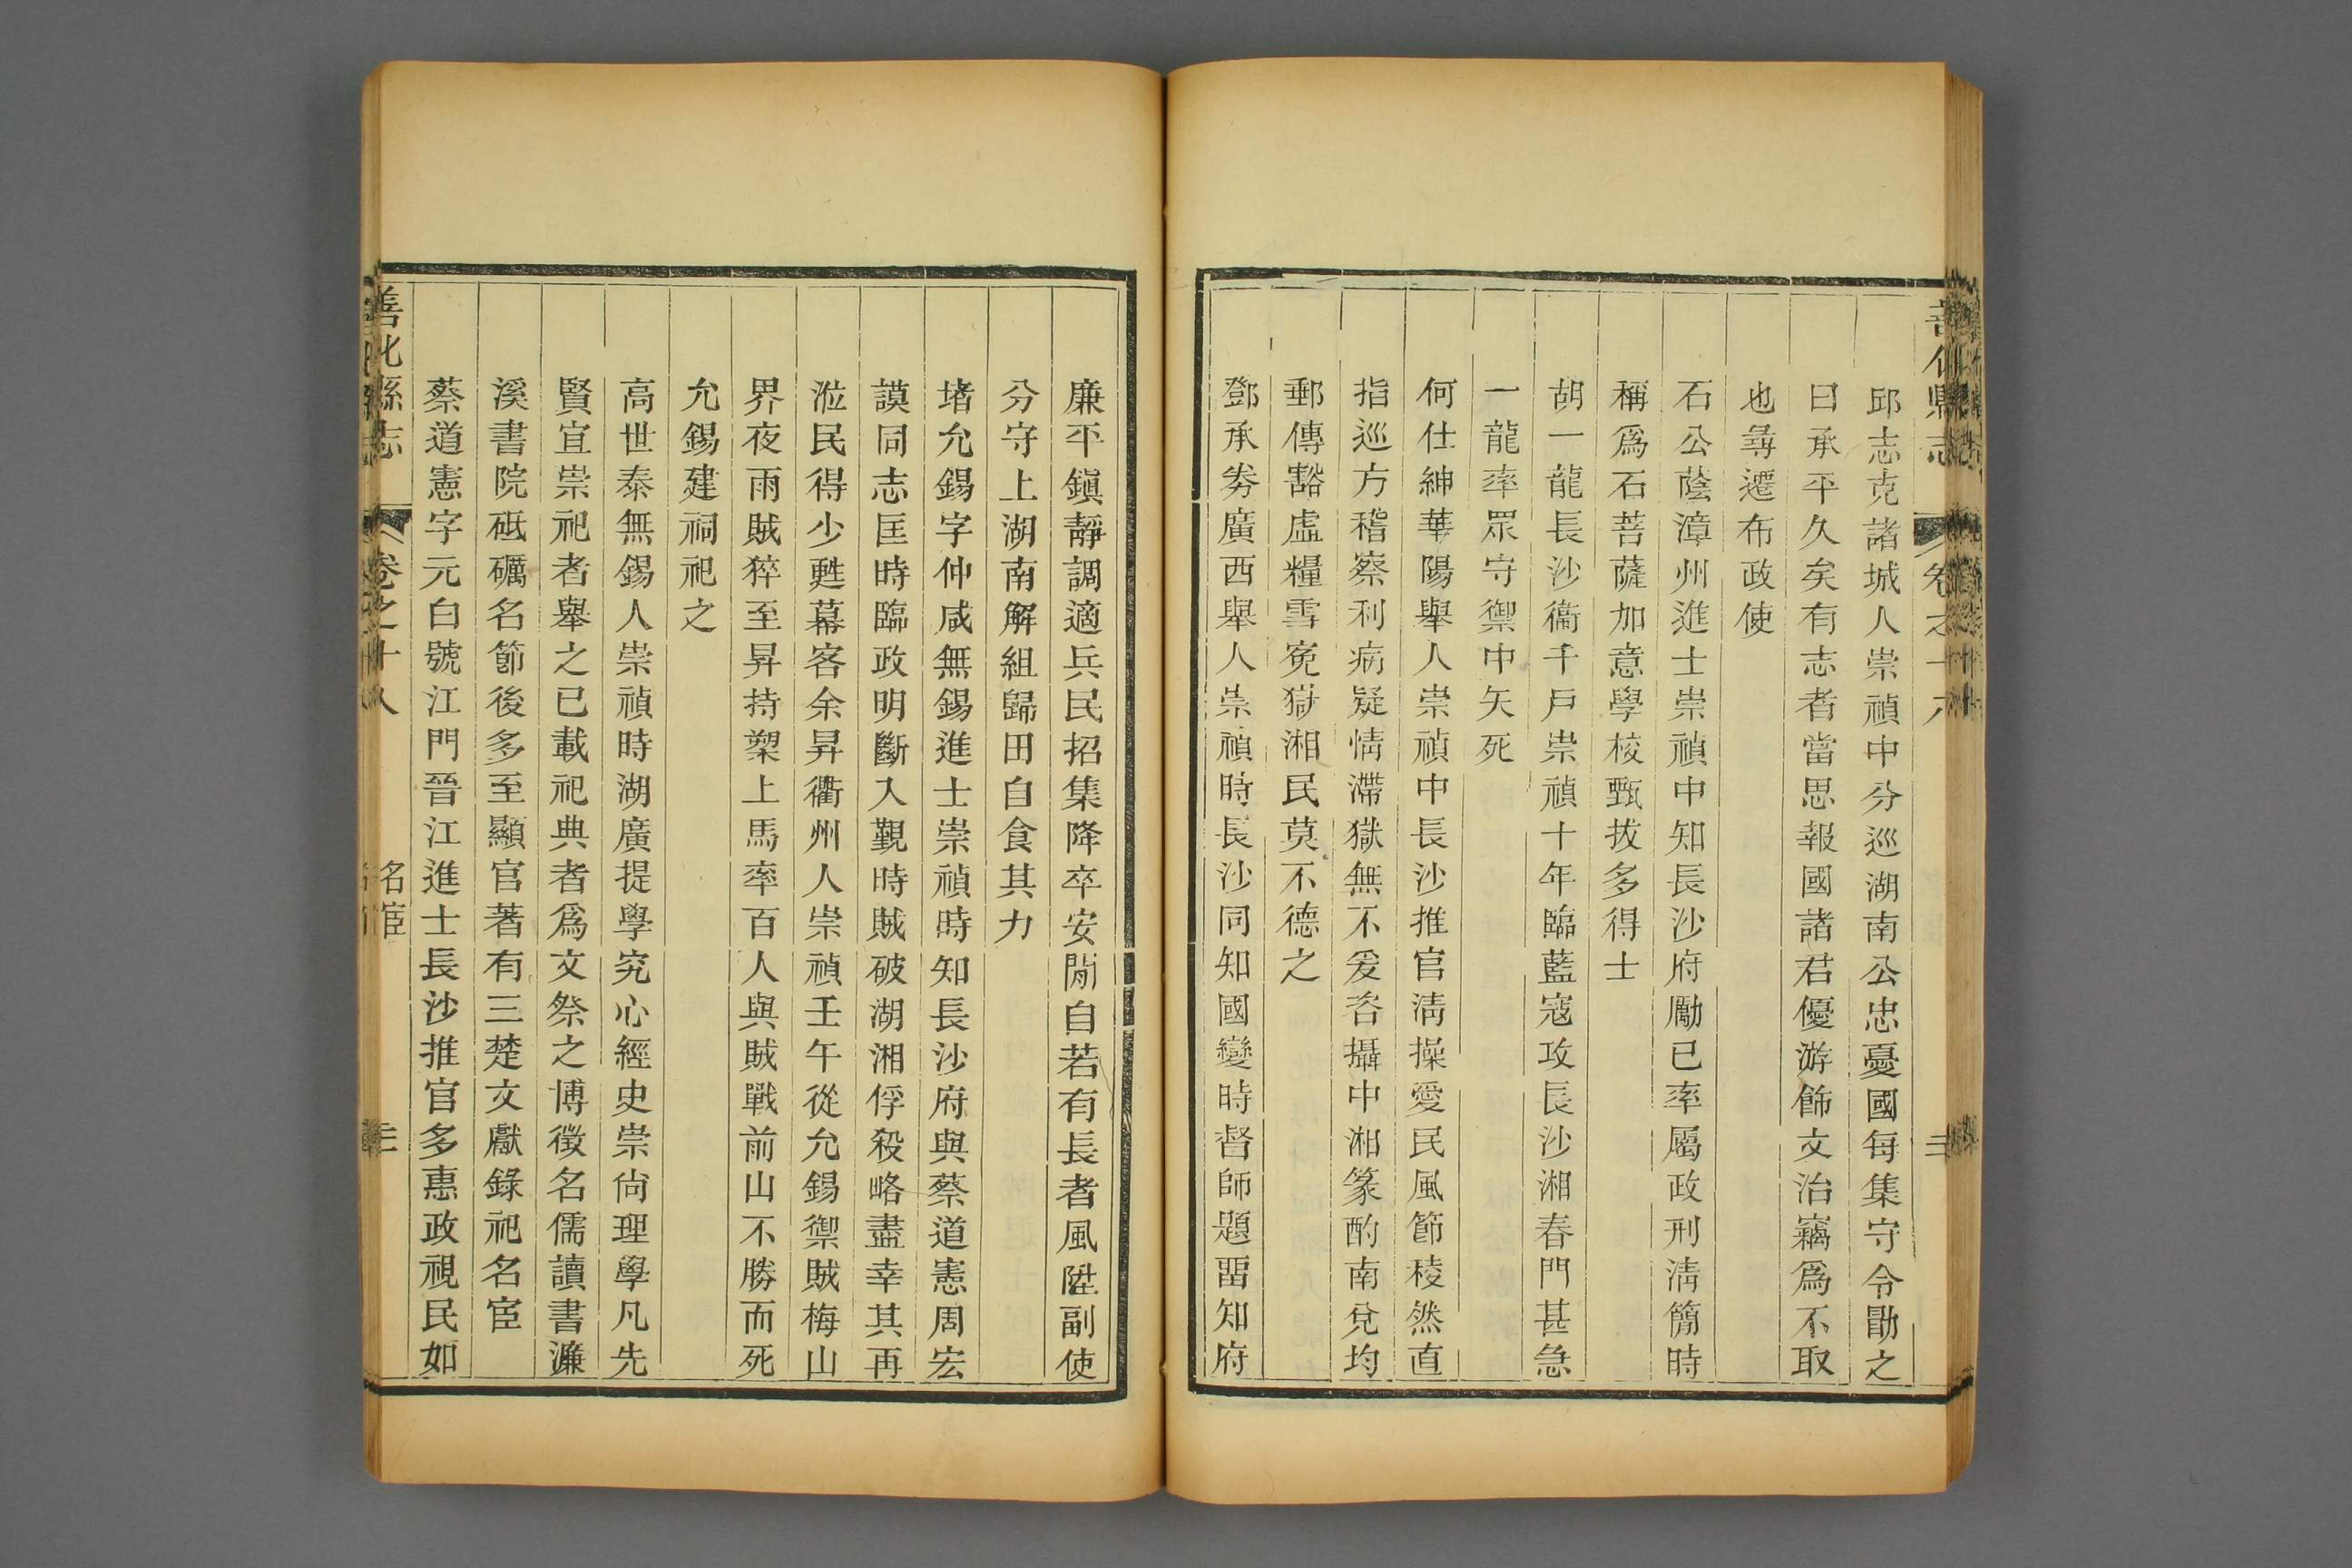 邱志克諸城人崇禎中分巡湖南公忠憂國每集守令勖之
曰承平久矣有志者當思報國諸君優游飾文治竊爲不取
也尋遷布政使
石公蔭漳州進士崇禎中知長沙府勵已率屬政刑淸簡時
稱爲石菩薩加意學校甄拔多得士
胡一龍長沙衞千戸崇禎十年臨藍寇攻長沙湘春門甚急
一龍率眾守禦中矢死
何仕紳華陽舉人崇禎中長沙推官淸操愛民風節稜然直
指巡方稽察利病疑情滯獄無不爰咨攝中湘篆酌南兌均
郵傳豁虛糧雪寃獄湘民莫不德之
鄧承劵廣西舉人崇禎時長沙同知國變時督師題畱知府
廉平鎭靜調適兵民招集降卒安閒自若有長者風陞副使
分守上湖南解組歸田自食其力
堵允錫字仲咸無錫進士崇禎時知長沙府與蔡道憲周宏
謨同志匡時臨政明斷入覲時賊破湖湘俘殺略盡幸其再
涖民得少甦幕客余昇衢州人崇禎壬午從允錫禦賊梅山
界夜雨賊猝至昇持槊上馬率百人與賊戰前山不勝而死
允錫建祠祀之
高世泰無錫人崇禎時湖廣提學究心經史崇尙理學凡先
賢宜崇祀者舉之已載祀典者爲文祭之博徵名儒讀書濂
溪書院砥礪名節後多至顯官著有三楚文獻錄祀名宦
蔡道憲字元白號江門晉江進士長沙推官多惠政視民如
善化縣志
卷之十八
名宦